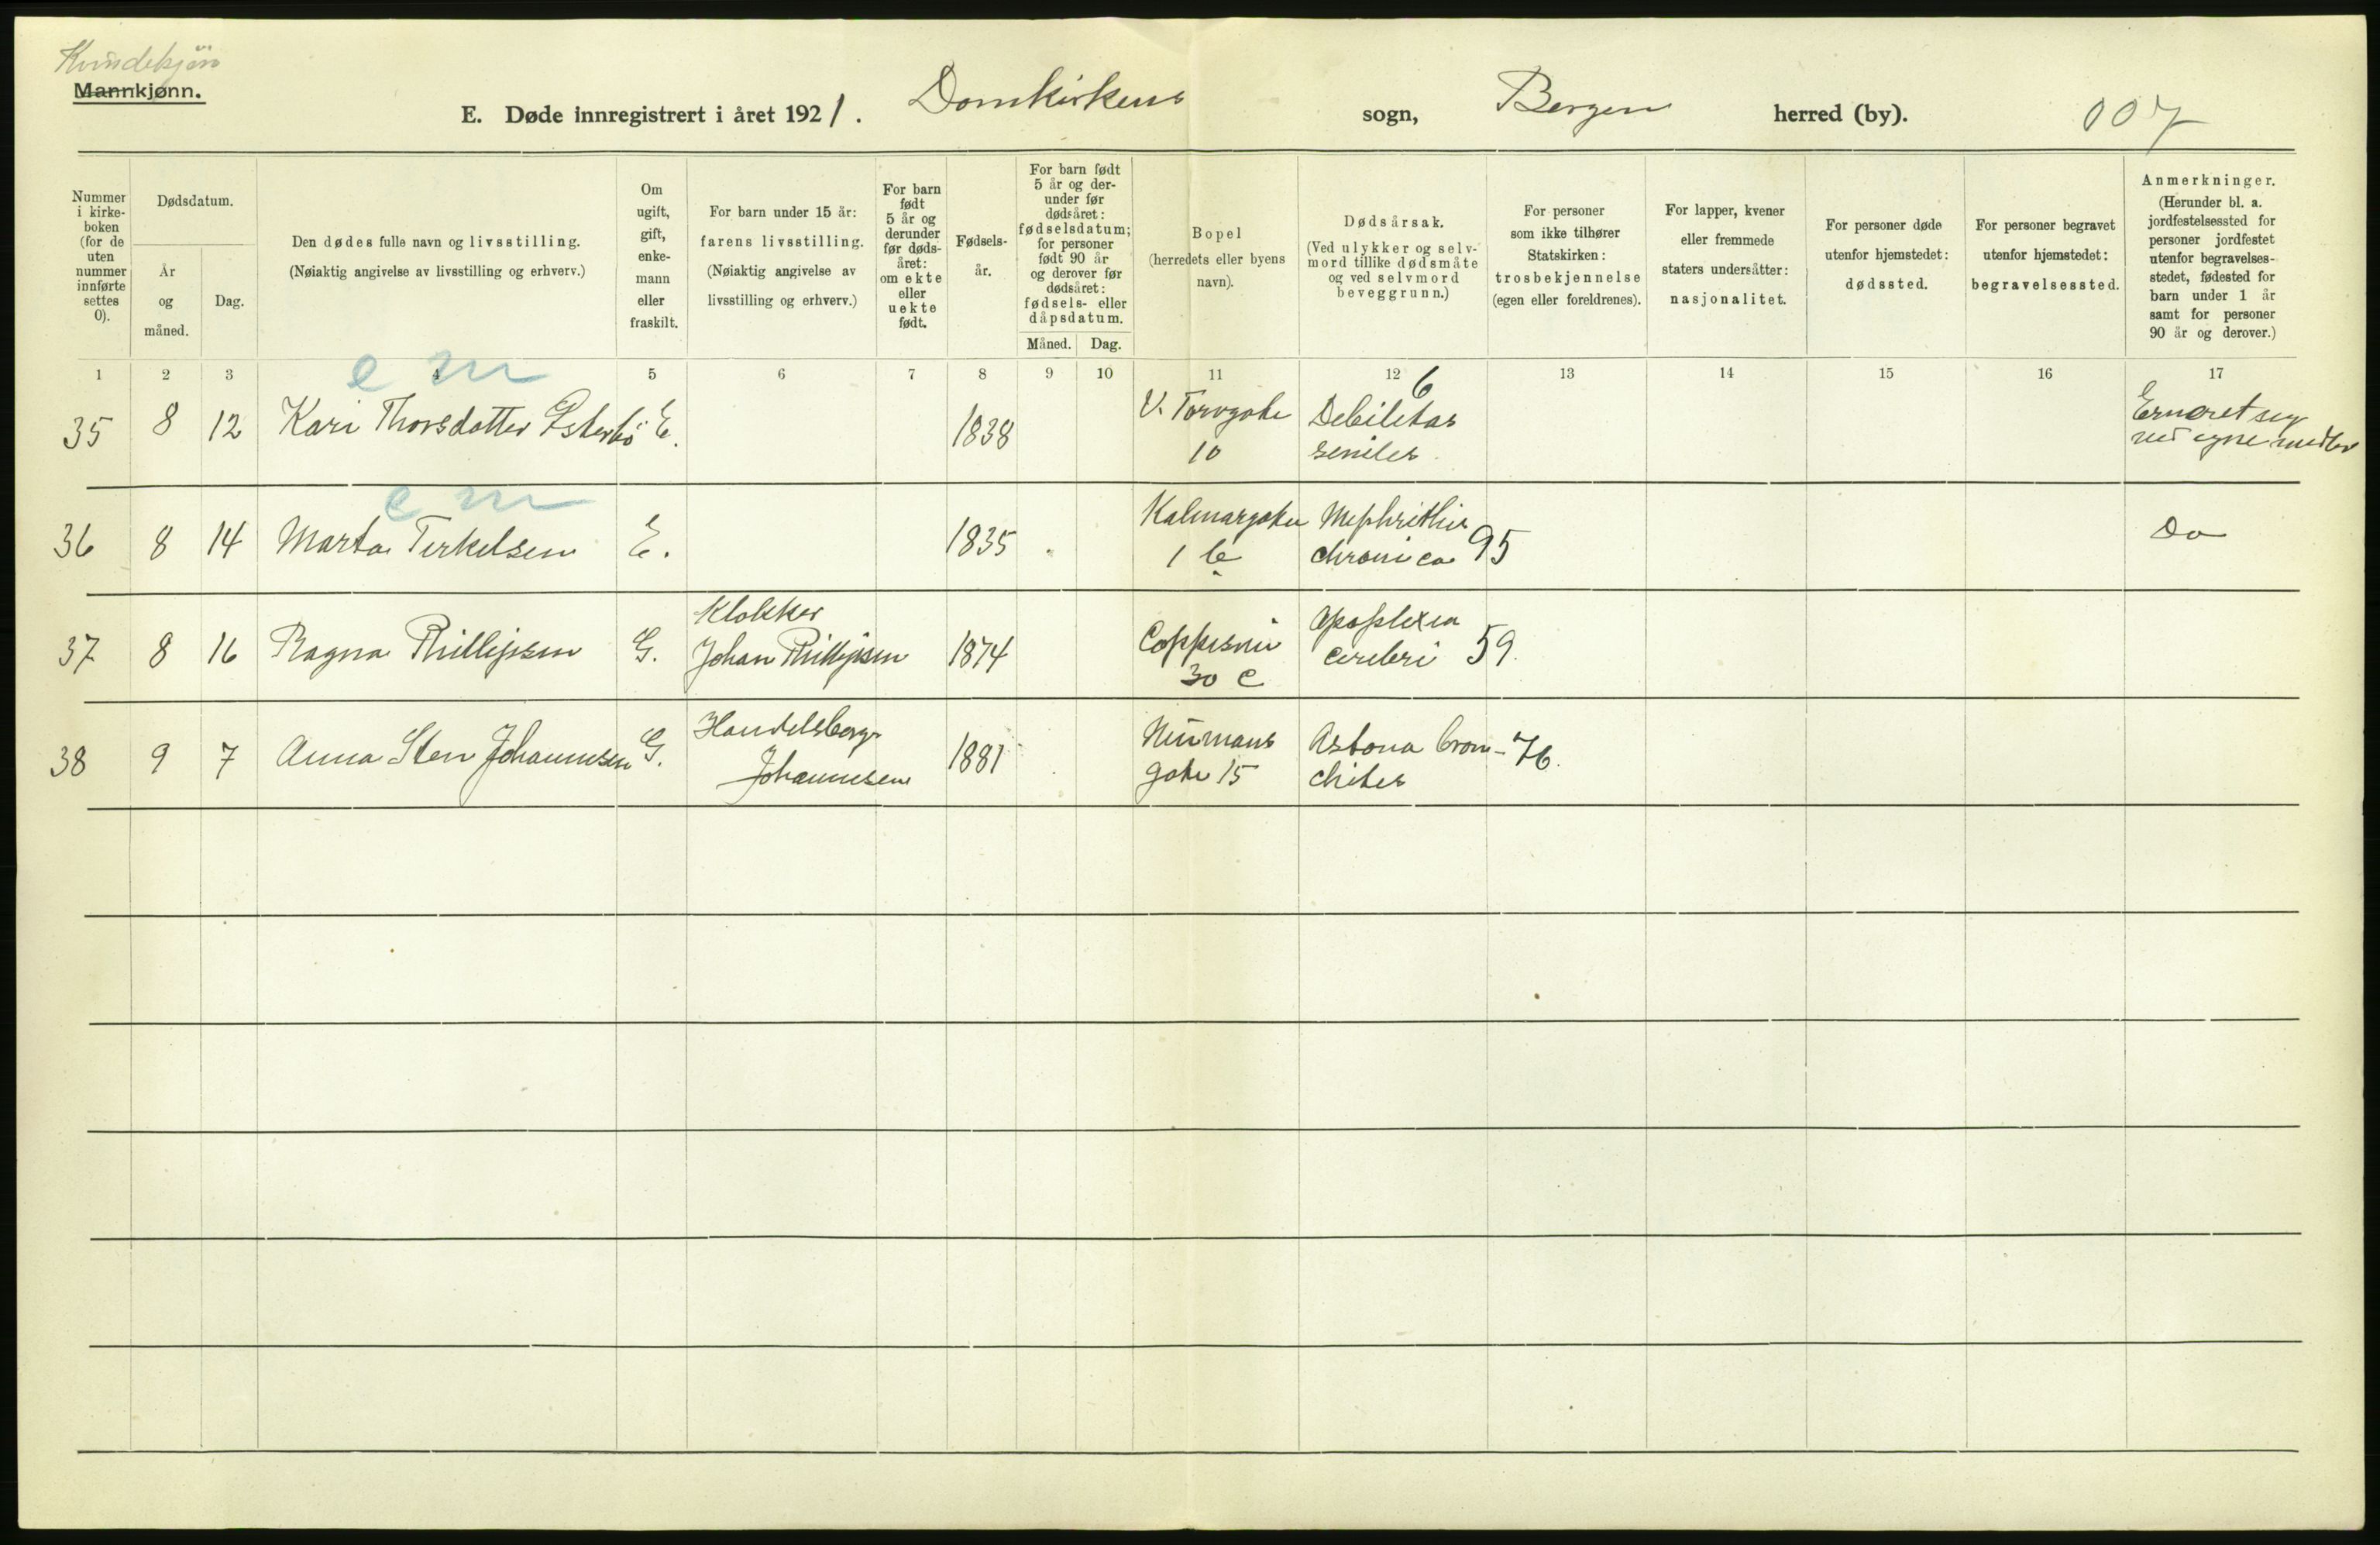 Kvindekjön
Mannkjønn.
E. Døde innregistrert i året 1921. Domkirkens sogn, Bergen herred (by). 007
Nummer i kirke-boken (for de uten nummer innførte settes 0).
Dødsdatum.
År og måned.
Dag.
Den dødes fulle navn og livsstilling.
(Nøiaktig angivelse av livsstilling og erhverv.)
Om ugift, gift, enke-mann eller fraskilt.
For barn under 15 år:
farens livsstilling.
(Nøiaktig angivelse av livsstilling og erhverv.)
For barn født 5 år og derunder før døds-året: om ekte eller uekte født.
Fødsels-år.
For barn født 5 år og der-under før dødsåret: fødselsdatum; for personer født 90 år og derover før dødsåret: fødsels- eller dåpsdatum.
Måned. Dag.
Bopel
(herredets eller byens navn).
Dødsårsak.
(Ved ulykker og selv-mord tillike dødsmåte og ved selvmord beveggrunn.)
For personer som ikke tilhører Statskirken: trosbekjennelse (egen eller foreldrenes).
For lapper, kvener eller fremmede staters undersåtter: nasjonalitet.
For personer døde utenfor hjemstedet: dødssted.
For personer begravet utenfor hjemstedet: begravelsessted.
Anmerkninger.
(Herunder bl. a. jordfestelsessted for personer jordfestet utenfor begravelses-stedet, fødested for barn under 1 år samt for personer 90 år og derover.)
1 2 3 4 5 6 7 8 9 10 11 12 13 14 15 16 17
e m
35 8 12 Kari Thorsdotter Østerbö E. 1838 V. Torvgate 10 Debilitas seniles 6 Ernæret seg ved egne midler
e m
36 8 14 Marta Terkelsen E. 1835 Kalmargaten 1 b Nephrithis chronica 95 Do
37 8 16 Ragna Phillipsen G. Klokker Johan Phillipsen 1874 Coppesmu 30 C Apoplexia cerebri 59.
38 9 7 Anna Sten Johannesen G. Handelsborg. Johannesen 1881 Neumans gate 15 Astma bron-chites 76.